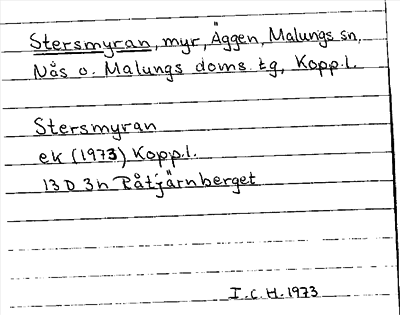 Stersmyran, myr, Äggen, Malungs sn,
Nås o. Malungs doms. tg, Kopp.l.
Stersmyran
ek (1973) Kopp.l.
13 D 3h Råtjärnberget
I.C.H. 1973